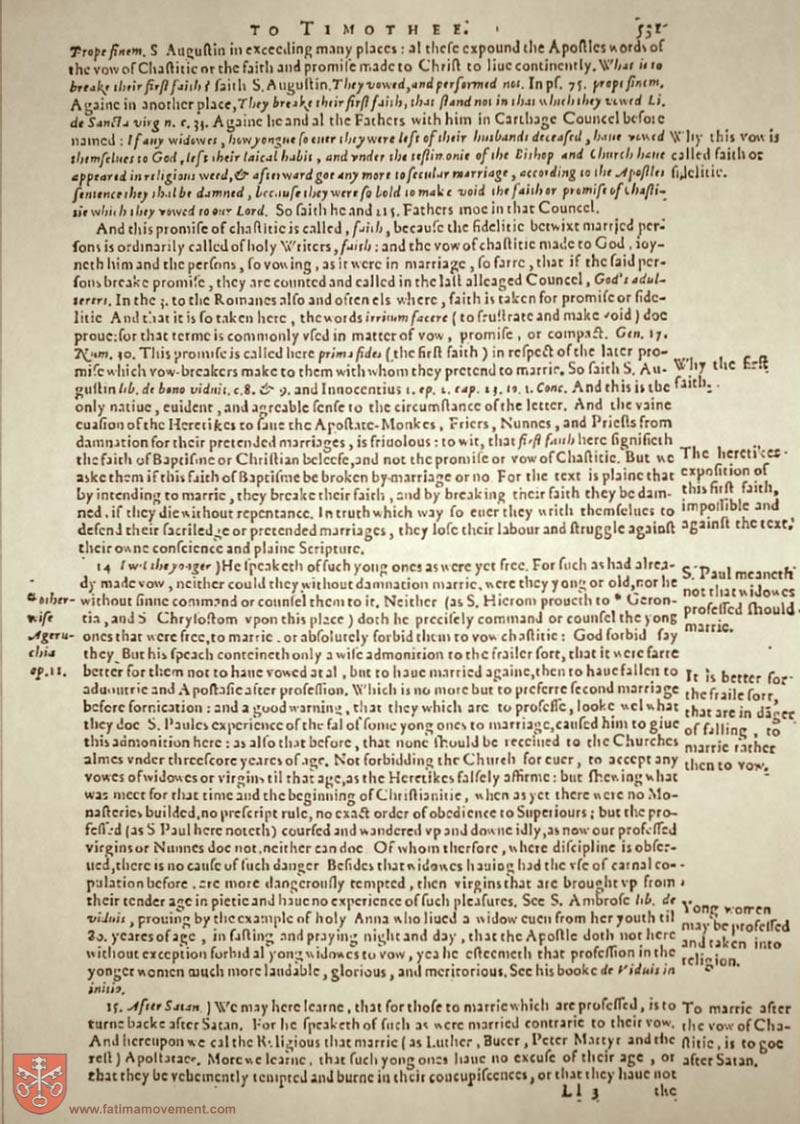 TO TIMOTHEE. 551
Prope finem. S Auguſtin in exceeding many places: al theſe expound the Apoſtles words of
the vow of Chaſtitie or the faith and promiſe made to Chriſt to liue continently. What is to
breake their firſt faith? ſaith S. Auguſtin. They vowed, and performed not. In pſ. 75. prope finem.
Againe in another place, They breake their firſt faith, that ſtand not in that which they vowed Li.
de Sancta virg n. c. 33. Againe he and al the Fathers with him in Carthage Councel before
named: If any widowes, how yongue ſo euer they were left of their husbands deceaſed, haue vowed
themſelues to God, left their laical habit, and vnder the teſtimonie of the Bishop and Church haue
appeared in religious weed, & afterward goe any more to ſecular marriage, according to the Apoſtles
ſentence they ſhal be damned, becauſe they were ſo bold to make void the faith or promiſe of chaſti-
tie which they vowed to our Lord. So ſaith he and 215. Fathers moe in that Councel.
Why this vow is
called faith or
fidelitie.
And this promiſe of chaſtitie is called, faith, becauſe the fidelitie betwixt married per-
ſons is ordinarily called of holy Writers, faith: and the vow of chaſtitie made to God, ioy-
neth him and the perſons, ſo vowing, as it were in marriage, ſo farre, that if the ſaid per-
ſons breake promiſe, they are counted and called in the laſt alleaged Councel, God's adul-
terers. In the 3. to the Romanes alſo and often els where, faith is taken for promiſe or fide-
litie And that it is ſo taken here, the words irritum facere (to fruſtrate and make void) doe
proue: for that terme is commonly vſed in matter of vow, promiſe, or compact. Gen. 17.
Num. 30. This promiſe is called here prima fides (the firſt faith) in reſpect of the later pro-
miſe which vow-breakers make to them with whom they pretend to marrie. So ſaith S. Au-
guſtin lib. de bono viduit. c. 8. & 9. and Innocentius 1. ep. 2. cap. 13. 10. 1. Conc. And this is the
only natiue, euident, and agreable ſenſe to the circumſtance of the letter. And the vaine
euaſion of the Heretikes to ſaue the Apoſtate-Monkes, Friers, Nunnes, and Prieſts from
damnation for their pretended marriages, is friuolous: to wit, that firſt faith here ſignifieth
the faith of Baptiſme or Chriſtian beleefe, and not the promiſe or vow of Chaſtitie. But we
aske them if this faith of Baptiſme be broken by marriage or no. For the text is plaine that
by intending to marrie, they breake their faith, and by breaking their faith they be dam-
ned, if they die without repentance. In truth which way ſo euer they writh themſelues to
defend their ſacriledge or pretended marriages, they loſe their labour and ſtruggle againſt
their owne conſcience and plaine Scripture.
Why the firſt
faith.
The heretikes
expoſition of
this firſt faith,
impoſſible and
againſt the text.
14 I wil the yonger) He ſpeaketh of ſuch yong ones as were yet free. For ſuch as had alrea-
dy made vow, neither could they without damnation marrie, were they yong or old, nor he
without ſinne command or counſel them to it. Neither (as S. Hierom proueth to * Geron-
tia, and S Chryſoſtom vpon this place) doth he preciſely command or counſel the yong
ones that were free, to marrie, or abſolutely forbid them to vow chaſtitie: God forbid ſay
they. But his ſpeach conteineth only a wiſe admonition to the frailer ſort, that it were farre
better for them not to haue vowed at al, but to haue married againe, then to haue fallen to
aduoutrie and Apoſtaſie after profeſſion. Which is no more but to preferre ſecond marriage
before fornication: and a good warning, that they which are to profeſſe, looke wel what
they doe S. Paules experience of the fal of ſome yong ones to marriage, cauſed him to giue
this admonition here: as alſo that before, that none ſhould be receiued to the Churches
almes vnder threeſcore yeares of age. Not forbidding the Church for euer, to accept any
vowes of widowes or virgins til that age, as the Heretikes falſely affirme: but ſhewing what
was meet for that time and the beginning of Chriſtianitie, when as yet there were no Mo-
naſteries builded, no preſcript rule, no exact order of obedience to Superiours; but the pro-
feſſed (as S Paul here noteth) courſed and wandered vp and downe idly, as now our profeſſed
virgins or Nunnes doe not, neither can doe Of whom therfore, where diſcipline is obſer-
ued, there is no cauſe of ſuch danger Beſides that widowes hauing had the vſe of carnal co-
pulation before, are more dangerouſly tempted, then virgins that are brought vp from
their tender age in pietie and haue no experience of ſuch pleaſures. See S. Ambroſe lib. de
viduis, prouing by the example of holy Anna who liued a widow euen from her youth til
80. yeares of age, in faſting and praying night and day, that the Apoſtle doth not here
without exception forbid al yong widowes to vow, yea he eſteemeth that profeſſion in the
yonger women much more laudable, glorious, and meritorious. See his booke de Viduis in
initio.
* other-
wiſe
Ageru-
chia
ep. 11.
S. Paul meaneth
not that widowes
profeſſed ſhould
marrie.
It is better for
the fraile ſort,
that are in dãger
of falling, to
marrie rather
then to vow.
Yong women
may be profeſſed
and taken into
religion.
15. After Satan.) We may here learne, that for thoſe to marrie which are profeſſed, is to
turne backe after Satan. For he ſpeaketh of ſuch as were married contrarie to their vow.
And hereupon we cal the Religious that marrie (as Luther, Bucer, Peter Martyr and the
reſt) Apoſtataes. More we learne, that ſuch yong ones haue no excuſe of their age, or
that they be vehemently tempted and burne in their concupiſcences, or that they haue not
To marrie after
the vow of Cha-
ſtitie, is to goe
after Satan.
Ll 3 the
www.fatimamovement.com